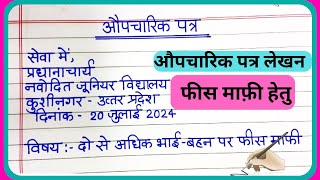 औपचारिक पत्र
सेवा में,
प्रधानाचार्य
नवोदित जूनियर विद्यालय
कुशीनगर - उत्तर प्रदेश
दिनांक - 20 जुलाई 2024
विषय :- दो से अधिक भाई-बहन पर फीस माफी
औपचारिक पत्र लेखन
फीस माफ़ी हेतु